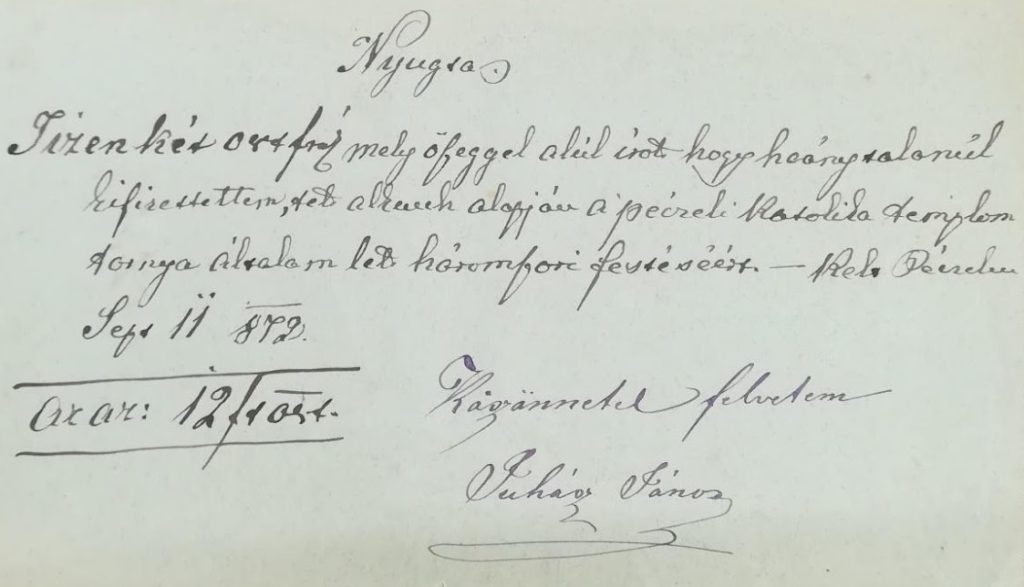 Nyugta.
Tizenkét osztfrt mely öszeggel alúl irot hogy hoánytalanúl
kifizettettem, tét alkunk alapján a péczeli Katolika templom
tornya általam let háromszori festéséért. — Kelt Péczelen
Sept 11 872.
az az: 12 frt oszt.
Köszönnetel felvetem
Juhász János